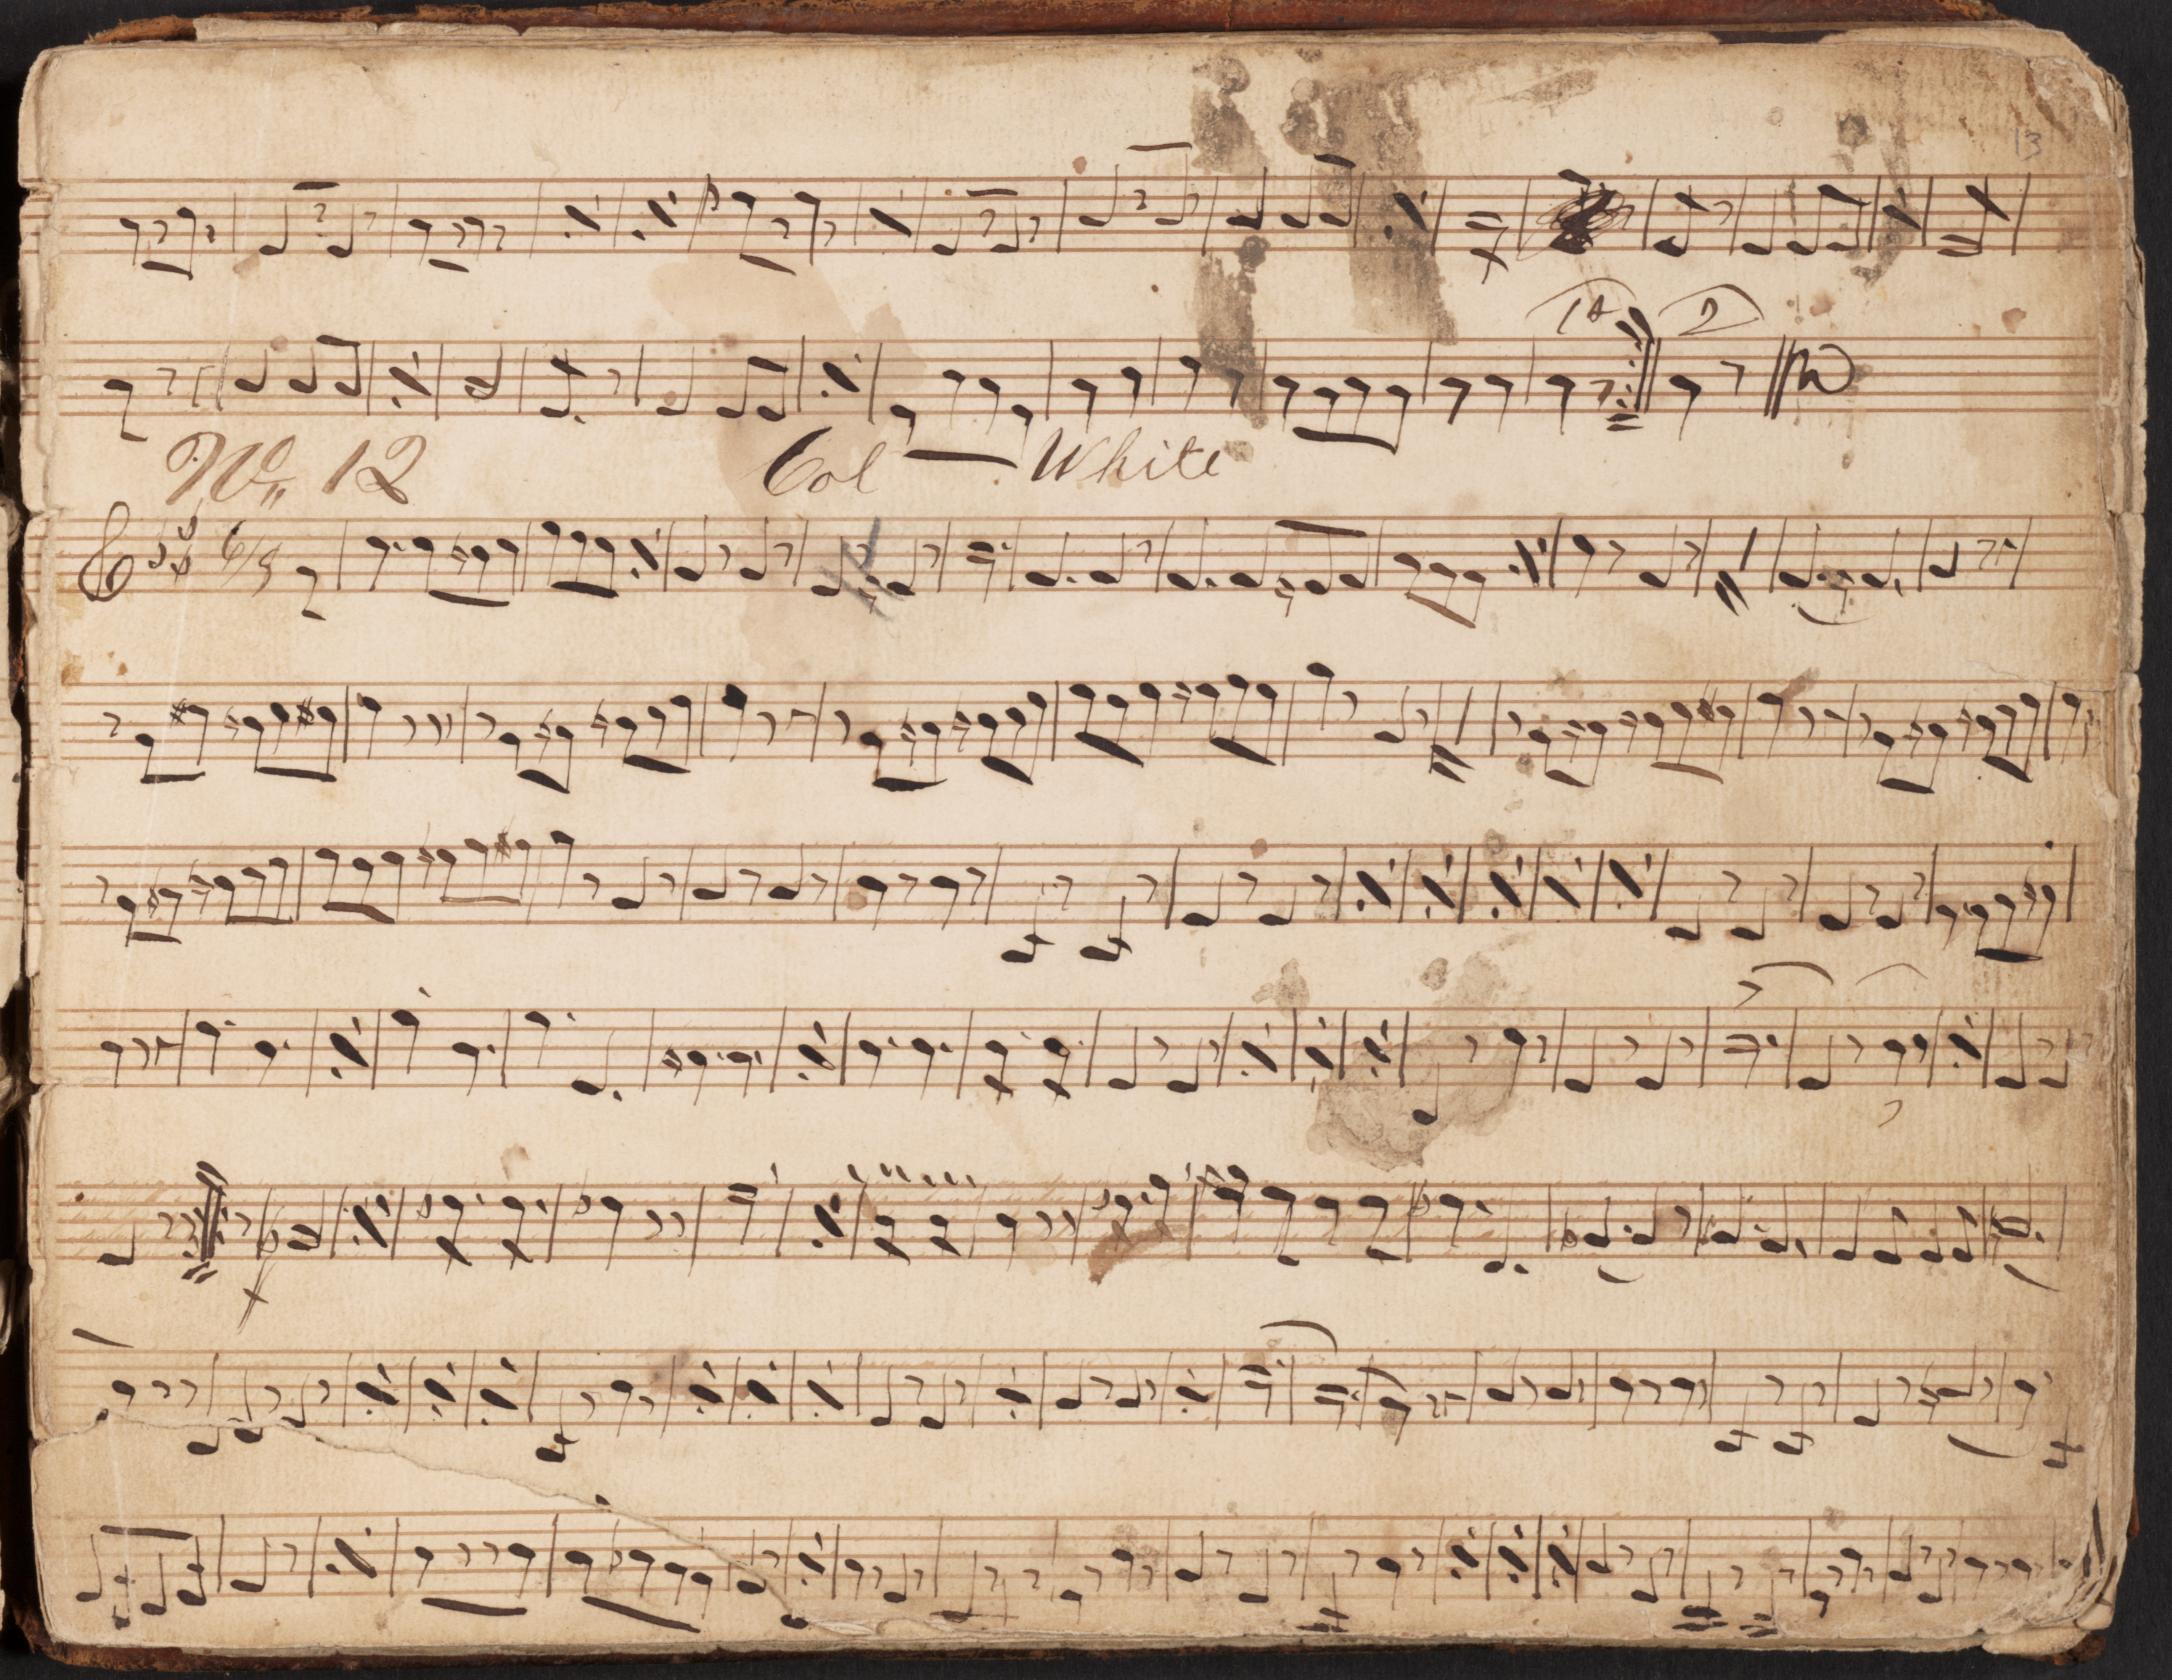 13
1st 2
No. 12 Col White
6/8